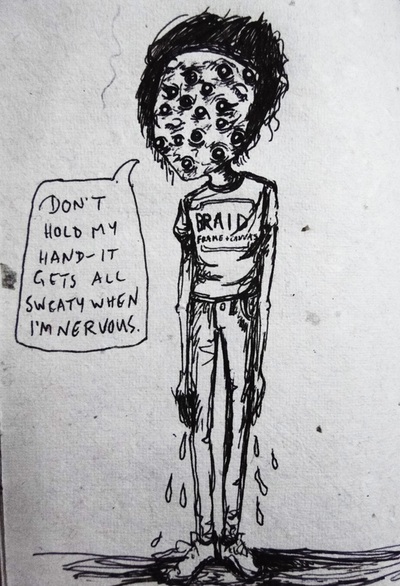 DON'T
HOLD MY
HAND-IT
GETS ALL
SWEATY WHEN
I'M NERVOUS.
BRAID
FRAME + CANVAS